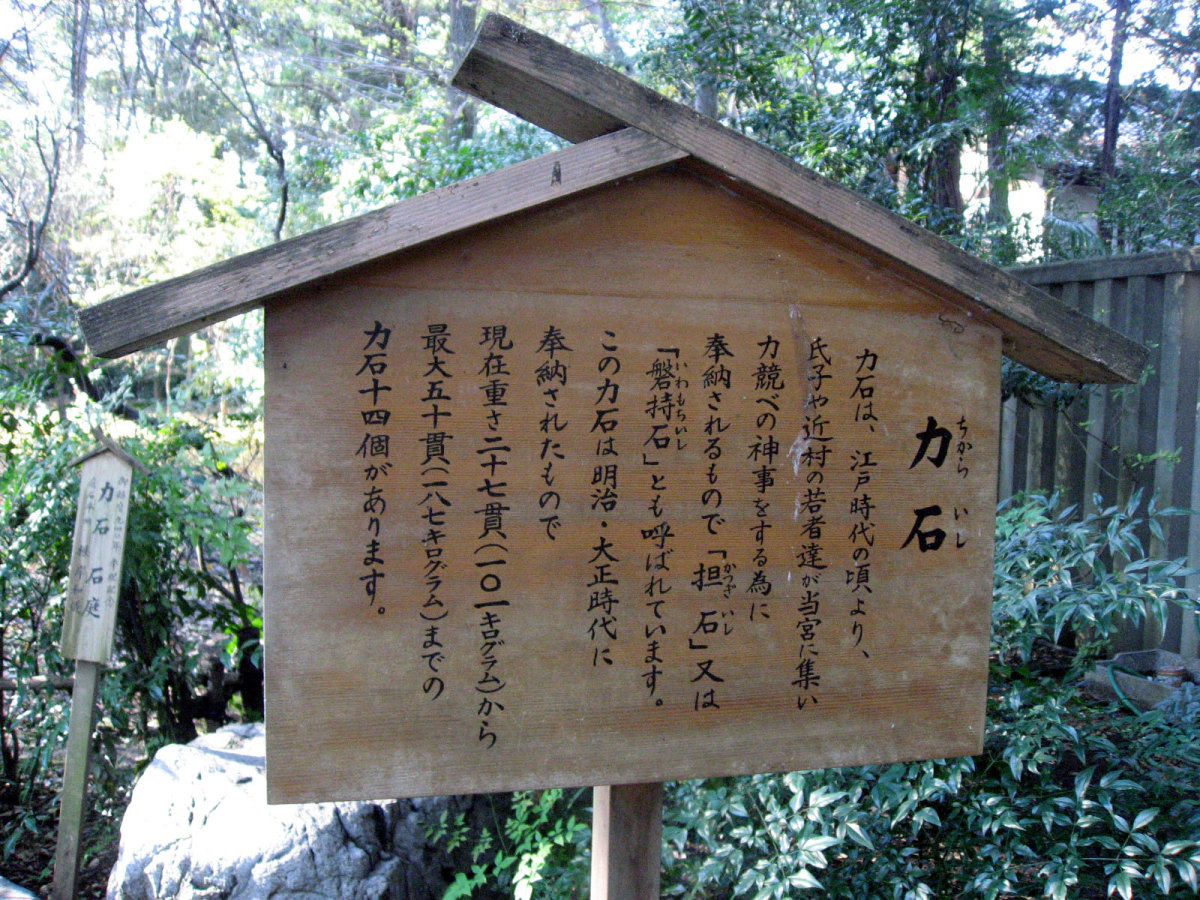 力石
ちから いし
力石は、江戸時代の頃より、
氏子や近村の若者達が当宮に集い
力競べの神事をする為に
奉納されるもので「担石」又は
かつぎ いし
「磐持石」とも呼ばれています。
いわもちいし
この力石は明治・大正時代に
奉納されたもので
現在重さ二十七貫(一〇一キログラム)から
最大五十貫(一八七キログラム)までの
力石十四個があります。
力石石庭